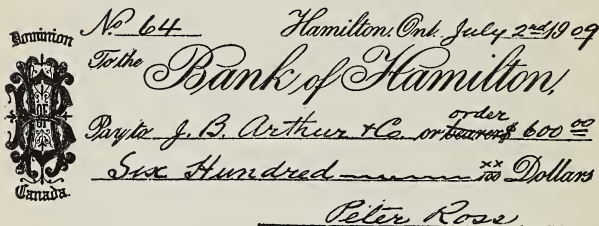 Dominion
No 64 Hamilton, Ont. July 2nd 1909
To the Bank of Hamilton,
order
Pay to J. B. Arthur & Co. or bearer $ 600 00
Six Hundred xx/100 Dollars
Canada.
Peter Ross